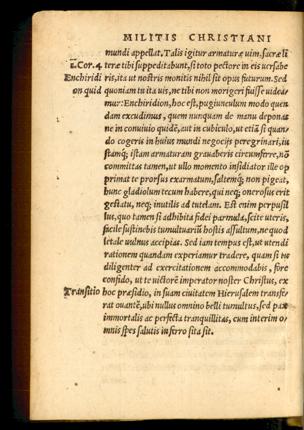 MILITIS CHRISTIANI
mundi appellat. Talis igitur armaturæ uim, sacræ li
1. Cor. 4 teræ tibi suppeditabunt, si toto pectore in eis uersabe
Enchiridi ris, ita ut nostris monitis nihil sit opus futurum. Sed
on quid quoniam tu ita uis, ne tibi non morigeri fuisse uidea
mur: Enchiridion, hoc est, pugiunculum modo quen
dam excudimus, quem nunquam de manu deponas
ne in conuiuio quidē, aut in cubiculo, ut etiā si quan
do cogeris in huius mundi negocijs peregrinari, iu
stamq; istam armaturam grauaberis circumferre, nō
committas tamen, ut ullo momento insidiator ille op
primat te prorsus exarmatum, saltemq; non pigeat,
hunc gladiolum tecum habere, qui neq; onerosus erit
gestatu, neq; inutilis ad tutelam. Est enim perpusil
lus, quo tamen si adhibita fidei parmula, scite uteris,
facile sustinebis tumultuariū hostis assultum, ne quod
letale uulnus accipias. Sed iam tempus est, ut utendi
rationem quandam experiamur tradere, quam si
diligenter ad exercitationem accommodabis, fore
confido, ut te uictorē imperator noster Christus, ex
Transitio hoc præsidio, in suam ciuitatem Hierusalem transfe
rat ouantē, ubi nullus omnino belli tumultus, sed pax
immortalis ac perfecta tranquillitas, cum interim o
mnis spes salutis in ferro sita sit.